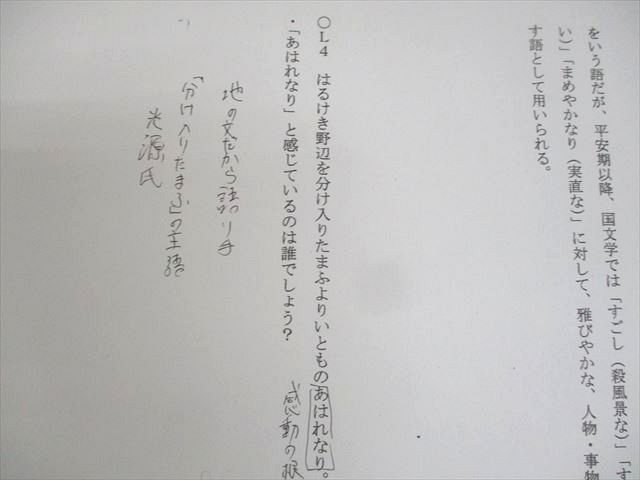 をいう語だが、平安期以降、国文学では「すごし（殺風景な）」「す
い）」「まめやかなり（実直な）」に対して、雅びやかな、人物・事物
す語として用いられる。
〇L4　はるけき野辺を分け入りたまふよりいとものあはれなり。
・「あはれなり」と感じているのは誰でしょう？
感動の根
地の文だから語り手
「分け入りたまふ」の主語
光源氏